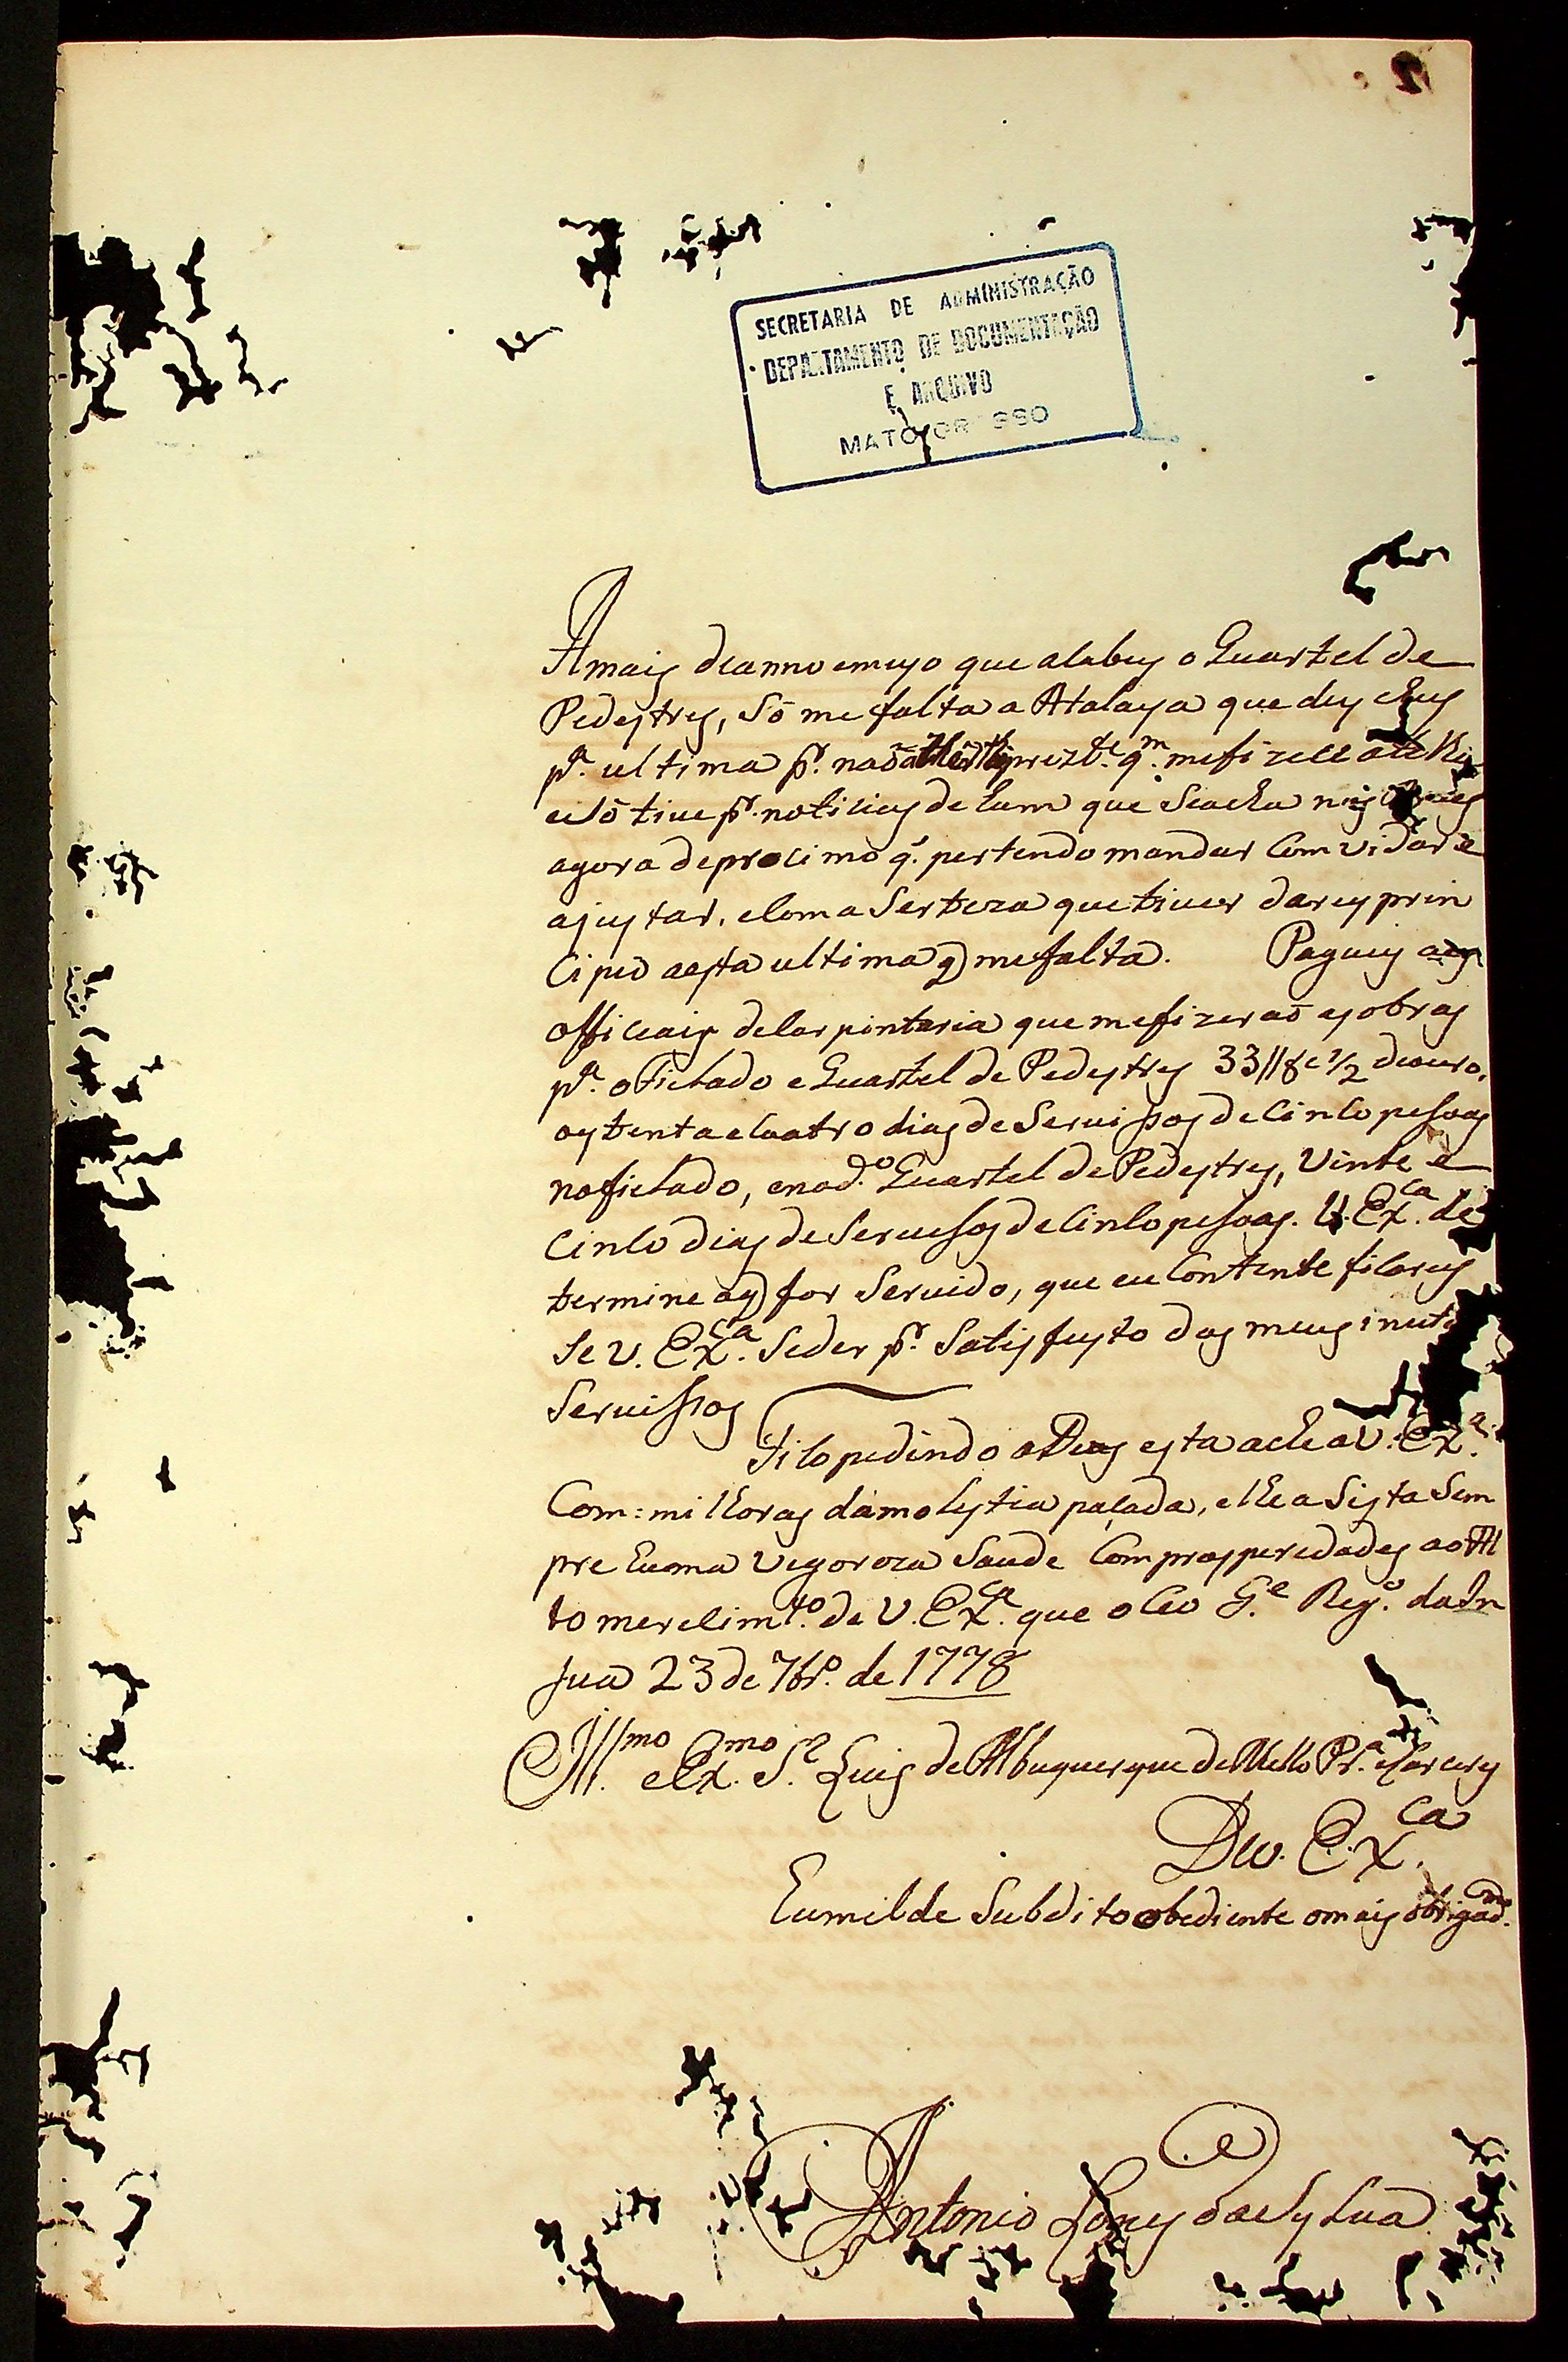 2
SECRETARIA DE ADMINISTRAÇÃO
DEPARTAMENTO DE DOCUMENTAÇÃO
E ARQUIVO
MATO GROSSO
Amais deanno emeyo que acabey o Quartel de
Pedestres, Só me falta a Atalaya que dey
pª. ultima pʳ. naõ prezᵗᵉ. qᵐ. mefizece
eSó tiue pʳ. noticias de hum que Seacha nas
agora deprocimo q̃. pertendo mandar Comvidar e
ajustar, ecom a Serteza que tiuer darey prin
cipio aesta ultima q̃ mefalta. Paguey aos
officiais decarpintaria que mefizeraõ as obras
pª. oFichado e Quartel de Pedestres 33//8ᵉ 1/2 deouro,
oytenta ecoatro dias de Seruissos decinco pesoas
nofichado, enod.º Quartel de Pedestres, Vinte e
Cinco dias de Seruesos decinco pesoas. V. Exᶜᵃ. de
termine oq̃ for Seruido, que eu Contente ficarey
Se V. Exᶜᵃ. Seder pʳ. Satisfeyto dos meus inut
Seruissos
Fico pedindo aDeos esta ache aV. Exª.
Com=milhoras damolestia paçada, elhe aSista Sem
pre huma Vegoroza Saude Com prosperedades ao Al
to merecimᵗᵒ. de V. Exᶜᵃ. que o Ceo Gᵉ. Reg.º daIn
sua 23 de 7brº. de 1778
Illᵐᵒ. eExᵐᵒ. Sʳ. Luis deAlbuquerque deMello Prª. eCaceres
DeV. Exᶜᵃ.
Eumilde Subdito obediente omais obrigadᵐᵒ.
Antonio Lopes daSylua